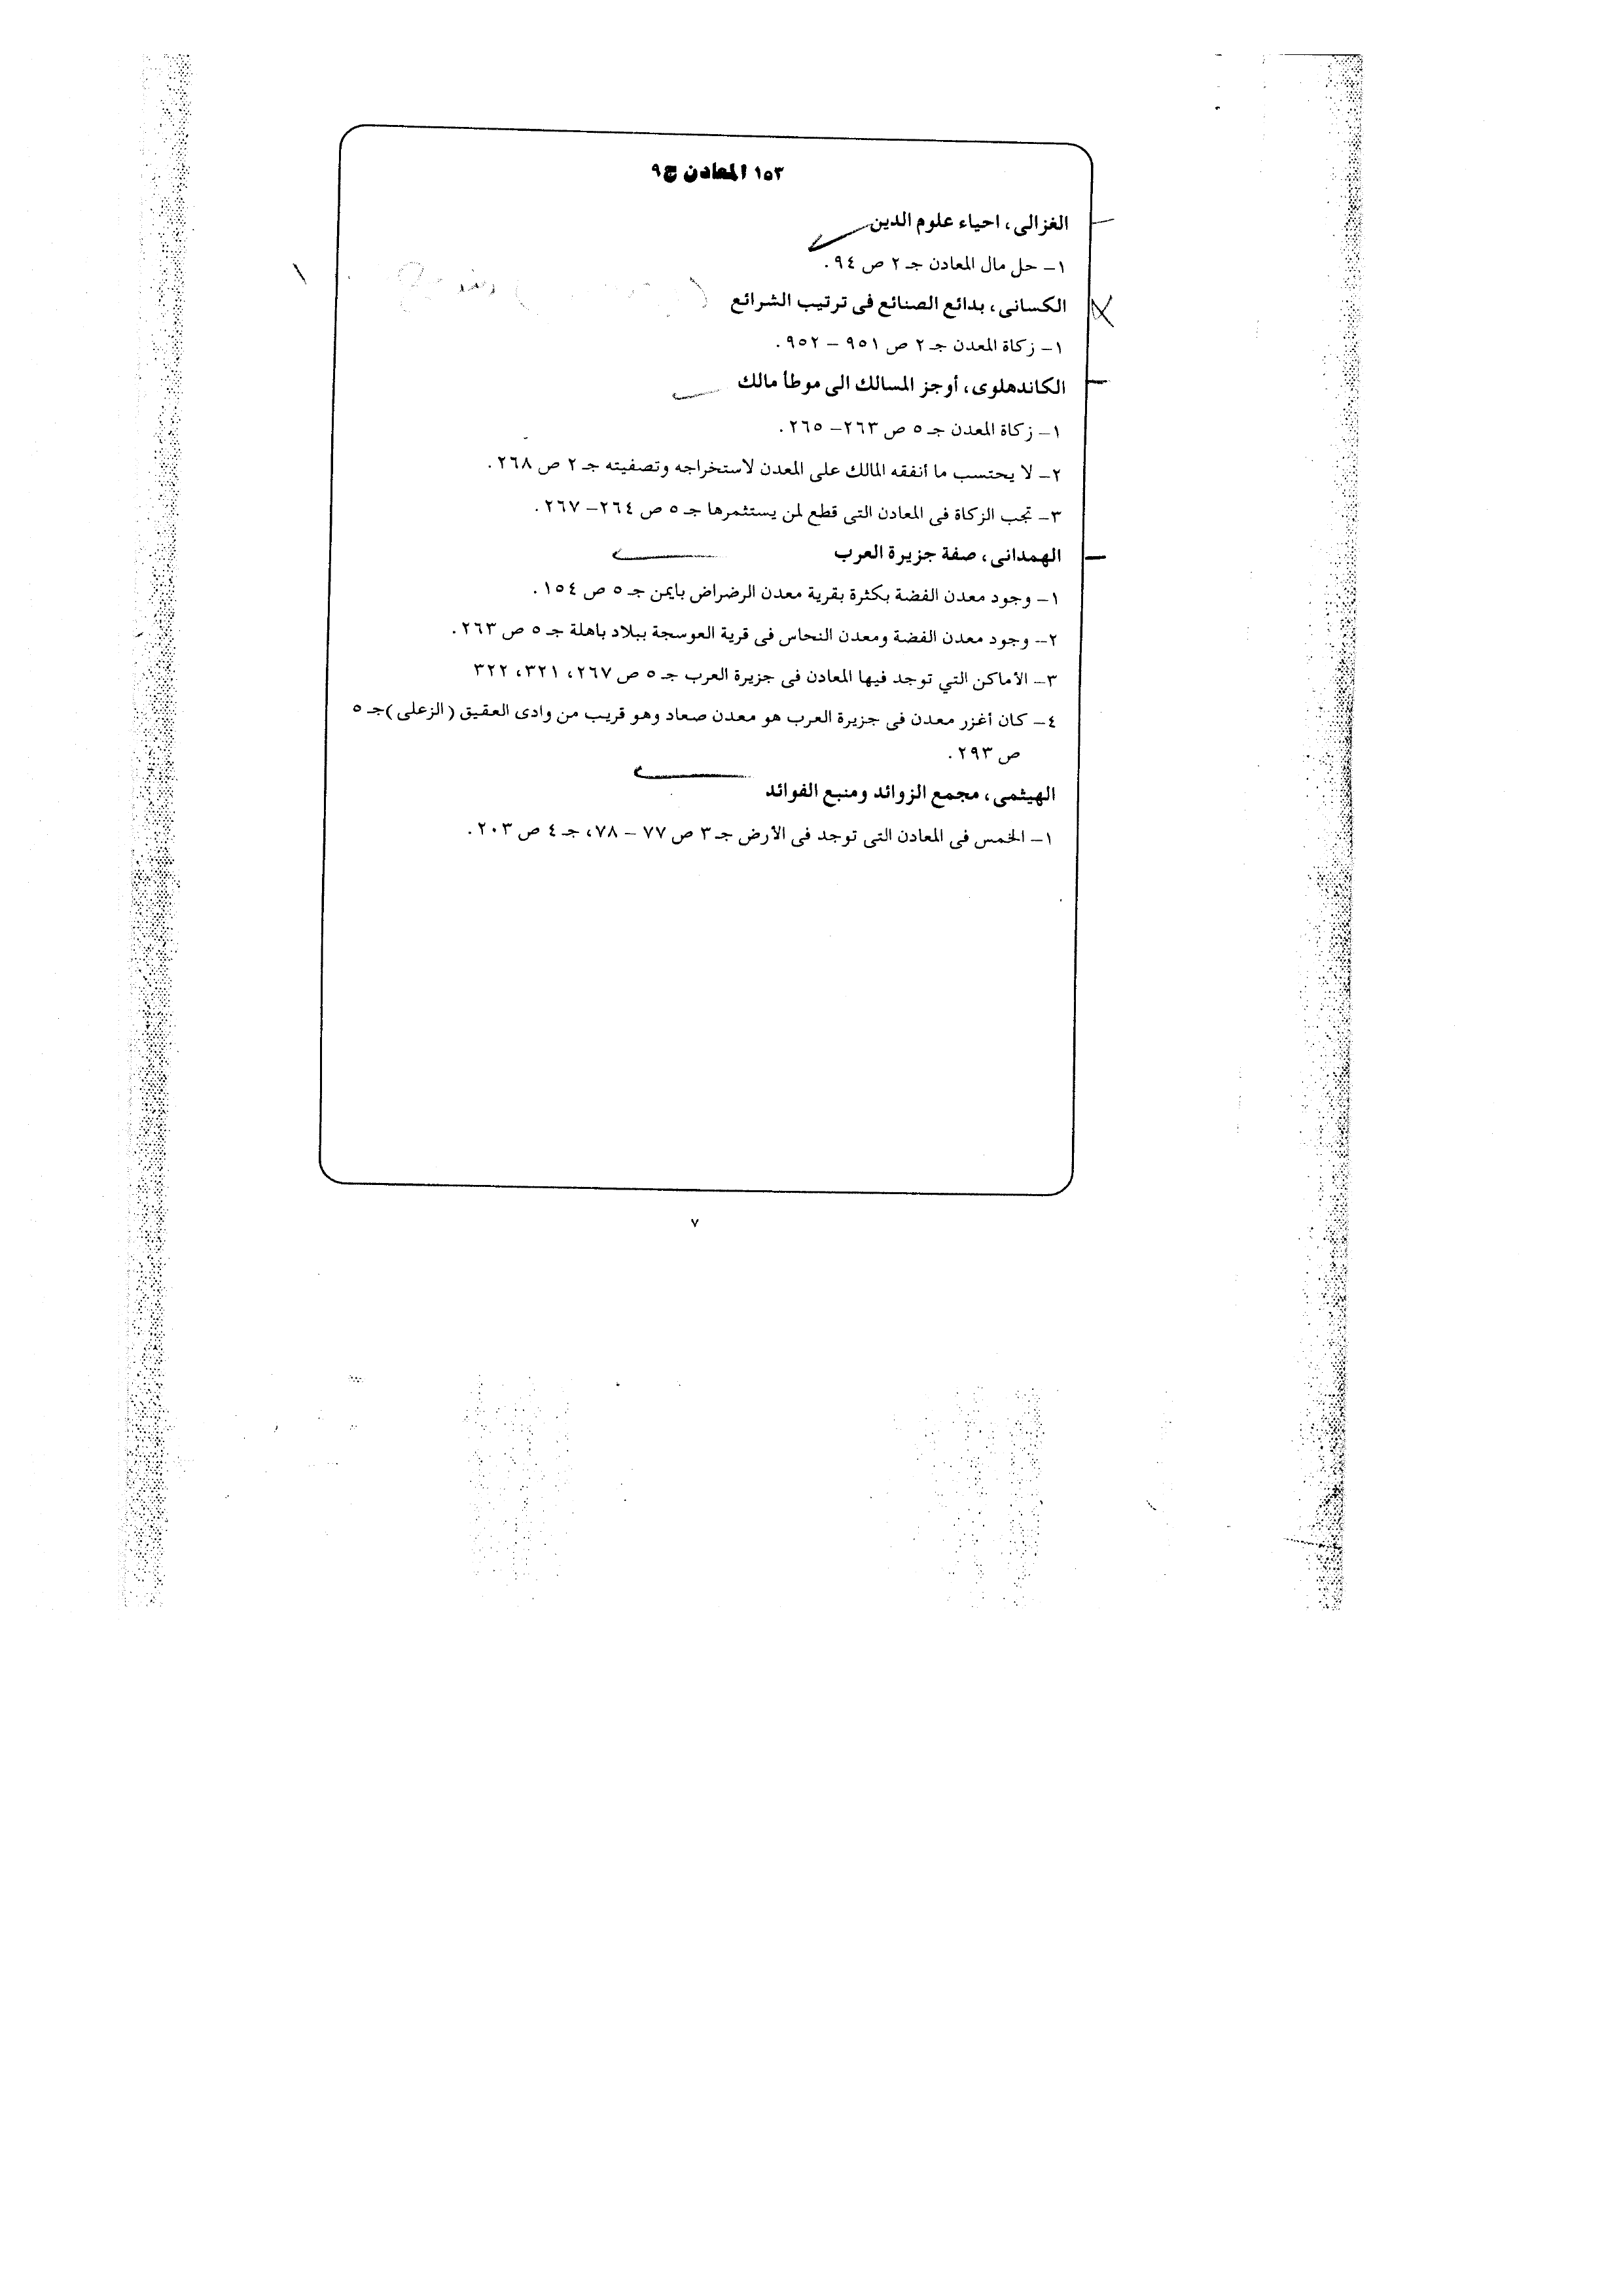 ١٥٣ المعادن ج٩
الغزالى، احياء علوم الدين
١- حل مال المعادن جـ ٢ ص ٩٤.
الكسانى، بدائع الصنائع فى ترتيب الشرائع
١- زكاة المعدن جـ ٢ ص ٩٥١ - ٩٥٢.
الكاندهلوى، أوجز المسالك الى موطأ مالك
١- زكاة المعدن جـ ٥ ص ٢٦٣- ٢٦٥.
٢- لا يحتسب ما أنفقه المالك على المعدن لاستخراجه وتصفيته جـ ٢ ص ٢٦٨.
٣- تجب الزكاة فى المعادن التى قطع لمن يستثمرها جـ ٥ ص ٢٦٤- ٢٦٧.
الهمدانى، صفة جزيرة العرب
١- وجود معدن الفضة بكثرة بقرية معدن الرضراض بايمن جـ ٥ ص ١٥٤.
٢- وجود معدن الفضة ومعدن النحاس فى قرية العوسجة ببلاد باهلة جـ ٥ ص ٢٦٣.
٣- الأماكن التي توجد فيها المعادن فى جزيرة العرب جـ ٥ ص ٢٦٧، ٣٢١، ٣٢٢
٤- كان أغزر معدن فى جزيرة العرب هو معدن صعاد وهو قريب من وادى العقيق (الزعلى) جـ ٥
ص ٢٩٣.
الهيثمى، مجمع الزوائد ومنبع الفوائد
١- الخمس فى المعادن التى توجد فى الأرض جـ ٣ ص ٧٧ - ٧٨، جـ ٤ ص ٢٠٣.
٧